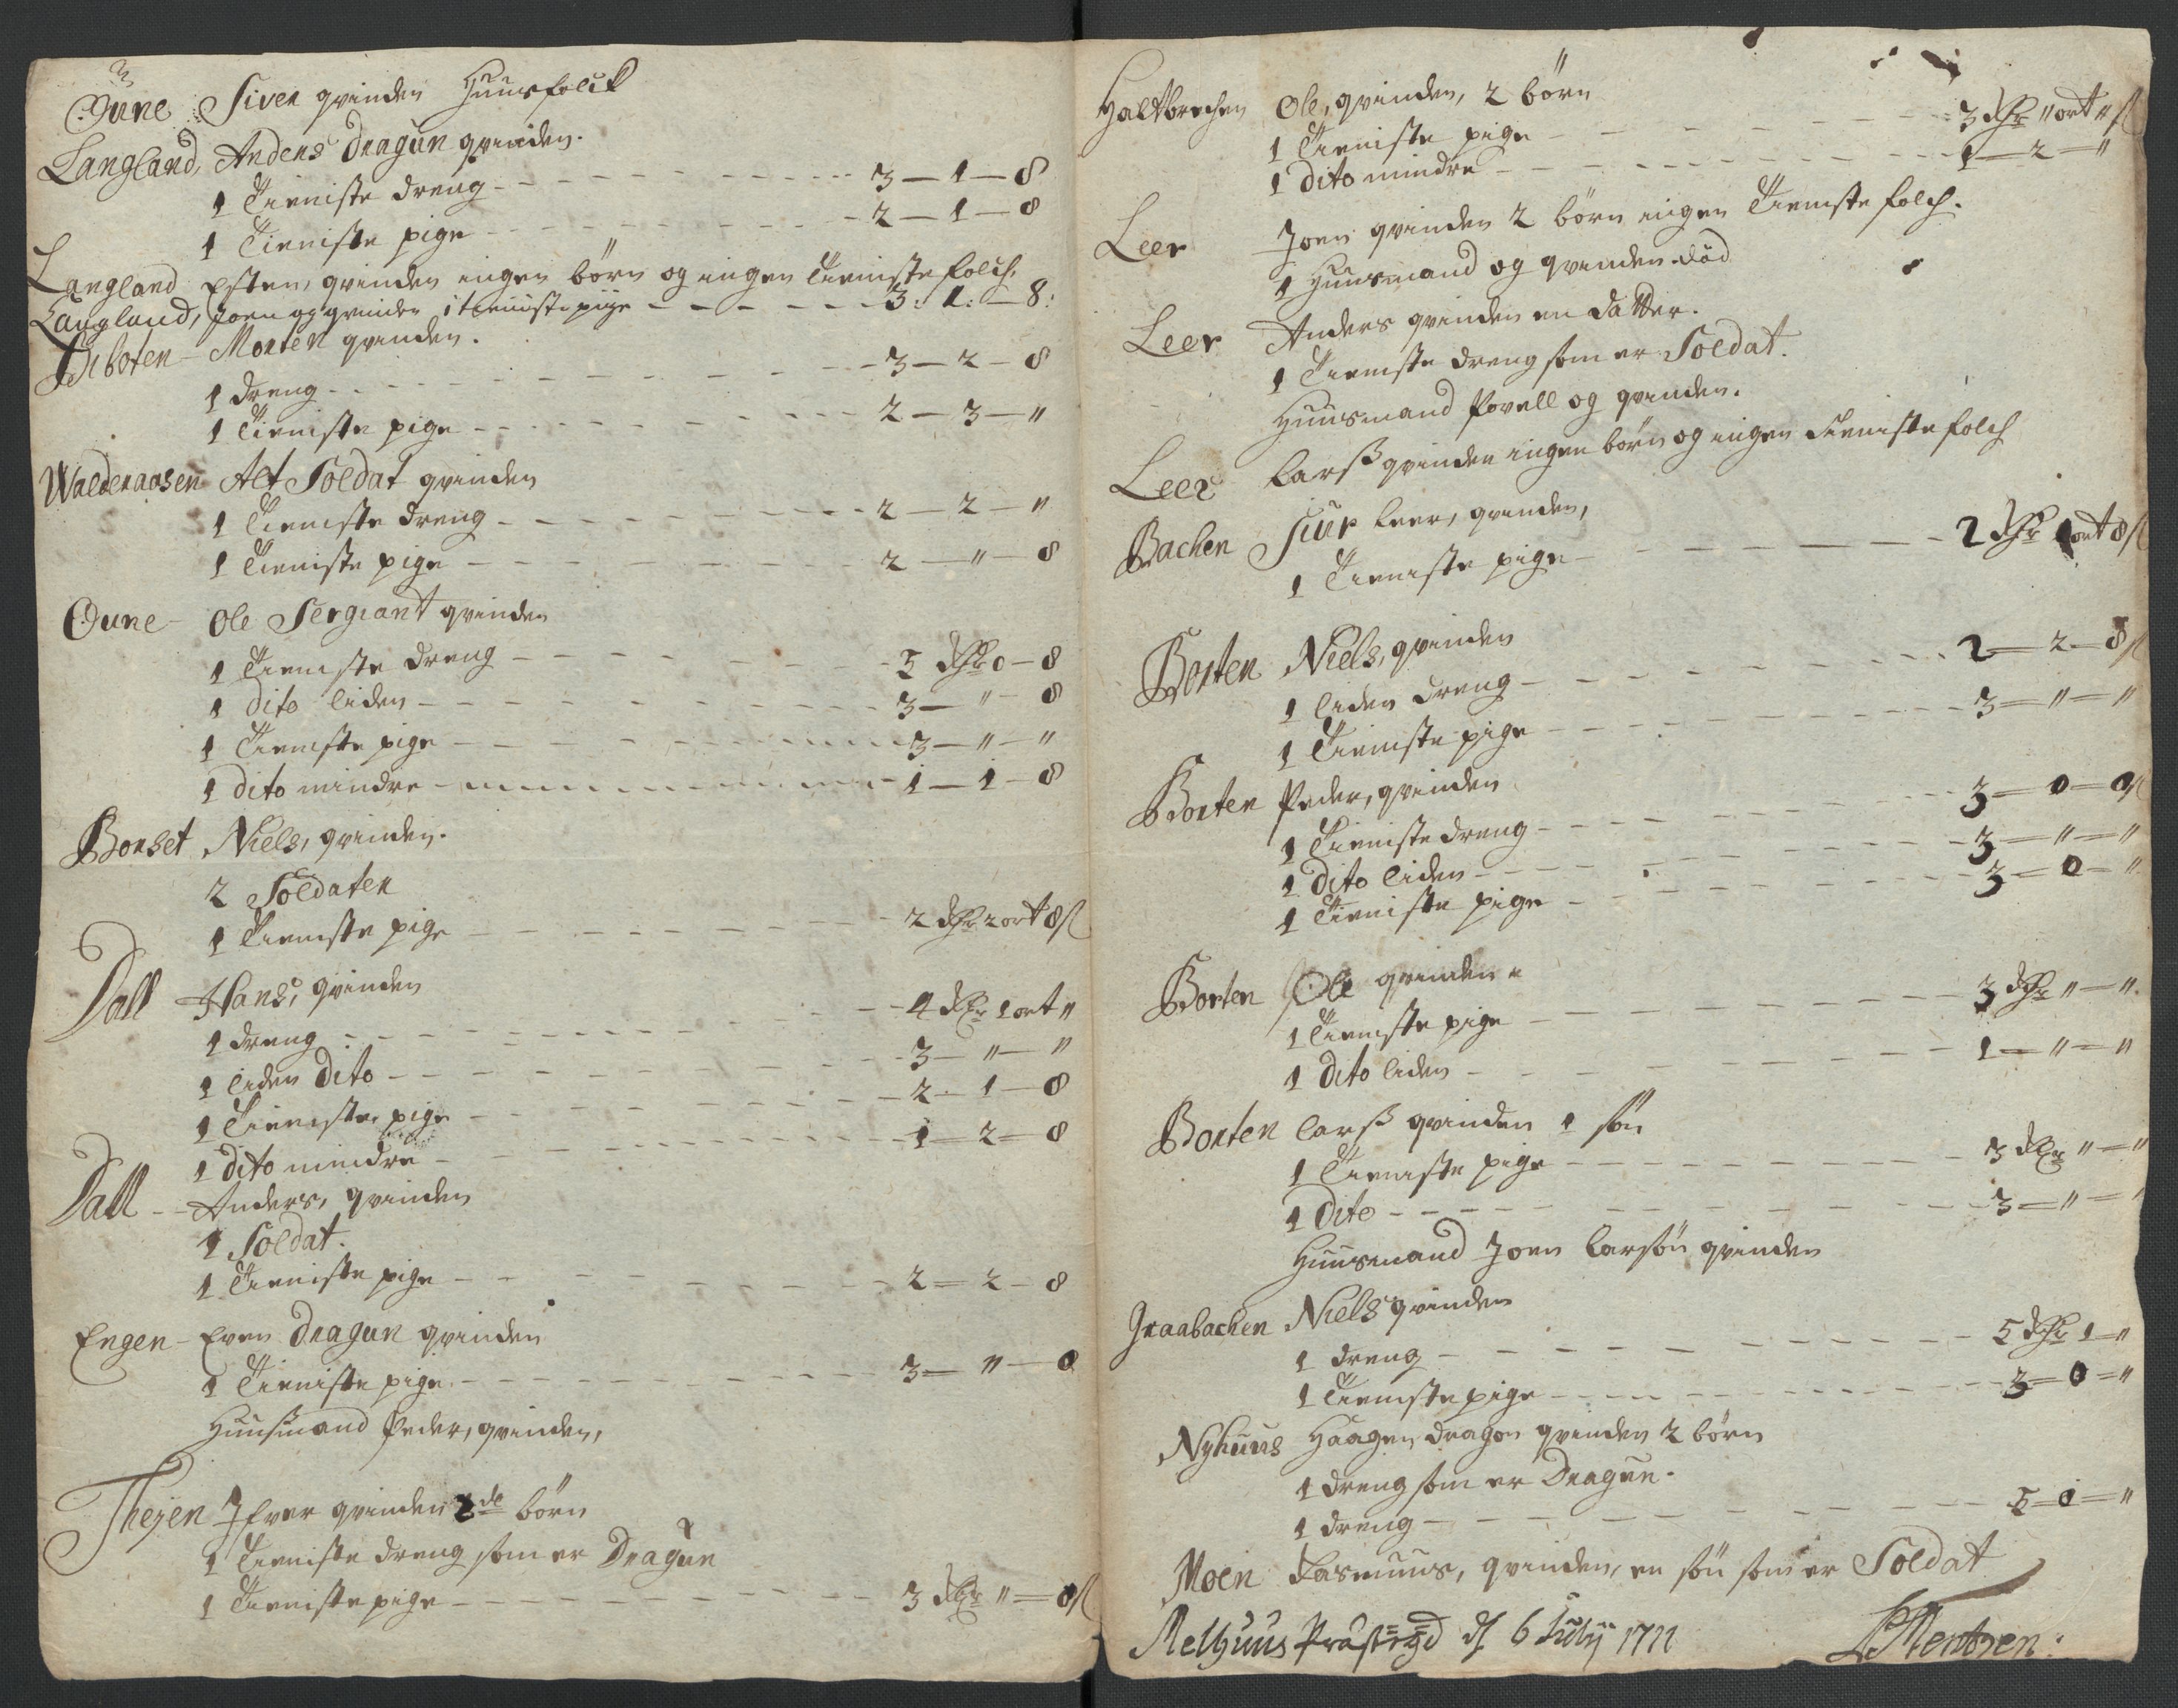 Øune Siver qvinden Huusfolck
Langland, Anders Dragun qvinden.
1 Tieniste dreng - - - 3 — 1 — 8
1 Tieniste pige - - - 2 — 1 — 8
Langland Esten, qvinden ingen börn og ingen Tieniste folch,
Langland, Joen og qvinden 1 tieniste pige - - - 3: 1: — 8:
Morten qvinden.
1 dreng - - - 3 — 2 — 8
1 Tieniste pige - - - 2 — 3 — "
Walderaasen Alt Soldat qvinden
1 Tieniste dreng - - - 2 — 2 — "
1 Tieniste pige - - - 2 — " — 8
Øune - Ole Sergiant qvinden
1 Tieniste dreng - - - 5 dlr 0 — 8
1 dito liden - - - 3 — " — 8
1 Tieniste pige - - - 3 — " — "
1 dito mindre - - - 1 — 1 — 8
Borset Niels, qvinden.
2 Soldater
1 Tieniste pige - - - 2 dlr 2 ort 8 s
Dall Hans, qvinden
1 dreng - - - 4 dlr 1 ort "
1 liden Dito - - - 3 — " — "
1 Tieniste pige - - - 2 - 1 — 8
1 Dito mindre - - - 1 — 2 — 8
Dall - - Anders, qvinden
1 Soldat.
1 Tieniste pige - - - 2 — 2 — 8
Engen - Even Dragun qvinden
1 Tieniste pige - - - 3 — " — 0
Huusmand Peder, qvinden,
Thejen Ifver qvinden 2de börn
1 Tieniste dreng som er Dragun
1 Tieniste pige - - - 3 dlr " — 8 s
Haltbrechen Ole, qvinden, 2 börn
1 Tieniste pige - - - 3 dlr " ort " s
1 dito mindre - - - 1 — 2 — "
Leer Joen qvinden 2 börn ingen Tieniste folch.
1 Huusmand og qvinden död
Leer Anders qvinden en datter.
1 Tieniste dreng som er Soldat.
Huusmand Povell og qvinden.
Leer Larss qvinden ingen börn og ingen Tieniste folch
Bachen Siur Leer, qvinden,
1 Tieniste pige - - - 2 dlr 1 ort 8 s
Borten Niels, qvinden
1 liden dreng - - - 2 — 2 — 8 s
1 Tieniste pige - - - 3 — " — "
Borten Peder, qvinden
1 Tieniste dreng - - - 3 — 0 — 0 s
1 Dito liden - - - 3 — " — "
1 Tieniste pige - - - 3 — 0 — "
Borten Ole qvinden
1 Tieniste pige - - - 3 dlr " — "
1 Dito liden - - - 1 — " — "
Borten Larss qvinden 1 sön
1 Tieniste pige - - - 3 dlr " — "
1 Dito - - - 3 — " — "
Huusmand Joen Larsön qvinden
Graabachen Niels qvinden
1 dreng - - - 5 dlr 1 — "
1 Tieniste pige - - - 3 — 0 — "
Nyhuus Haagen dragon qvinden 2 börn
1 dreng som er Dragun.
1 dreng - - - 5 — 0 — "
Moen Rasmuus, qvinden, en sön som er Soldat
Melhuus Præstegd d 6 Julij 1711
Mentzen: